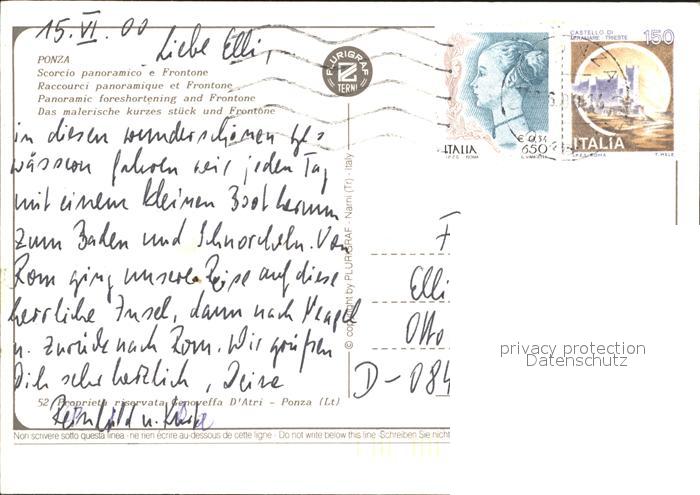 15. VI. 00
Liebe Elli,
PONZA
Scorcio panoramico e Frontone
Raccourci panoramique et Frontone
Panoramic foreshortening and Frontone
Das malerische kurzes stück und Frontone
PLURIGRAF
TERNI
CASTELLO DI
MIRAMARE - TRIESTE
150
ITALIA
€ 0,34
650
I.P.Z.S. ROMA
ITALIA
I.P.Z.S. ROMA
in diesen wunderschönen Ges
wässern fahren wir jeden Tag
mit einem kleinen Boot herum
zum Baden und Schnorcheln. Von
Rom ging unsere Reise auf diese
herrliche Insel, dann nach Neapel
u. zurück nach Rom. Wir grüßen
Dich sehr herzlich, Deine
Reinhild u.
52 Proprietà riservata Genoveffa D'Atri - Ponza (Lt)
© copyright by PLURIGRAF - Narni (Tr) - Italy
F
Elli
Otto
D-084
privacy protection
Datenschutz
Non scrivere sotto questa linea - ne rien écrire au-dessous de cette ligne - Do not write below this line - Schreiben Sie nicht